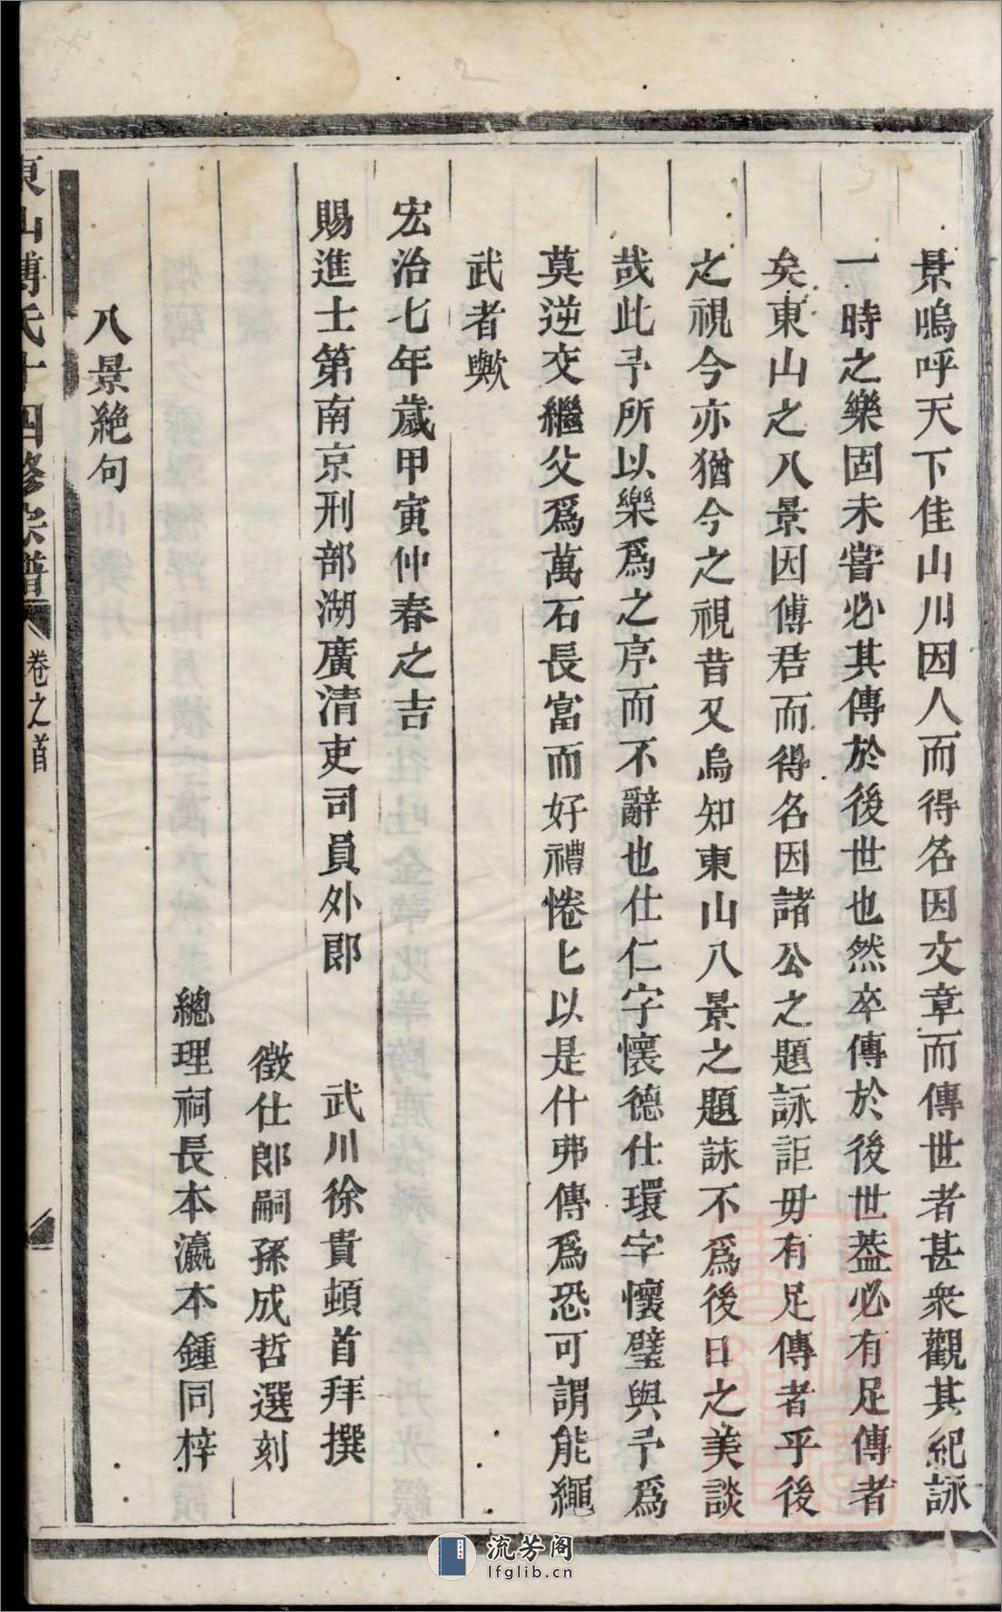 景嗚呼天下佳山川因人而得名因文章而傳世者甚衆觀其紀詠
一時之樂固未嘗必其傳於後世也然卒傳於後世葢必有足傳者
矣東山之八景因傅君而得名因諸公之題詠詎毋有足傳者乎後
之視今亦猶今之視昔又烏知東山八景之題詠不爲後日之美談
哉此予所以樂爲之序而不辭也仕仁字懷德仕環字懷璧與予爲
莫逆交繼父爲萬石長富而好禮惓匕以是什弗傳爲恐可謂能繩
武者歟
宏治七年歲甲寅仲春之吉
賜進士第南京刑部湖廣清吏司員外郎 武川徐貴頓首拜撰
徵仕郎嗣孫成哲選刻
總理祠長本瀛本鍾同梓
八景絶句
東山傅氏十四修宗譜 卷之首
流芳阁
lfglib.cn